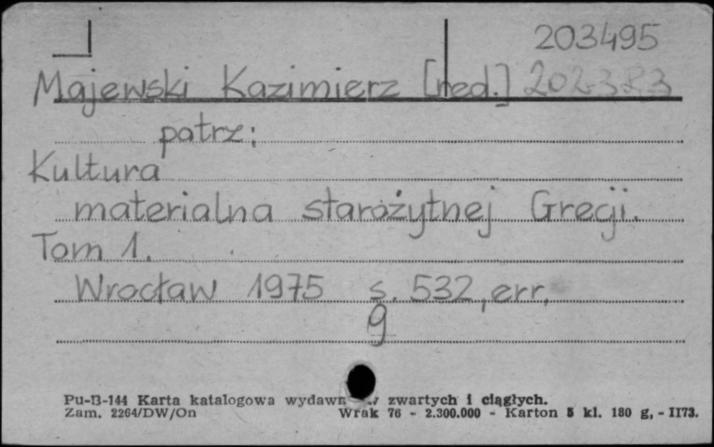 203495
Majewski Kazimierz [red.] 202383
patrz:
Kultura
materialna starożytnej Grecji.
Tom 1.
Wrocław 1975 s. 532, err.
g
Pu-B-144 Karta katalogowa wydawn zwartych i ciągłych.
Zam. 2264/DW/On Wrak 76 - 2.300.000 - Karton 5 kl. 180 g, - II73.